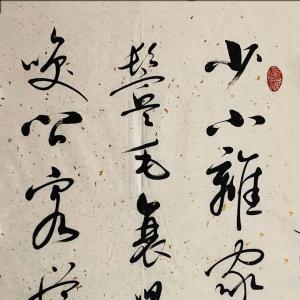 少小離家
鬢毛衰
咲問客